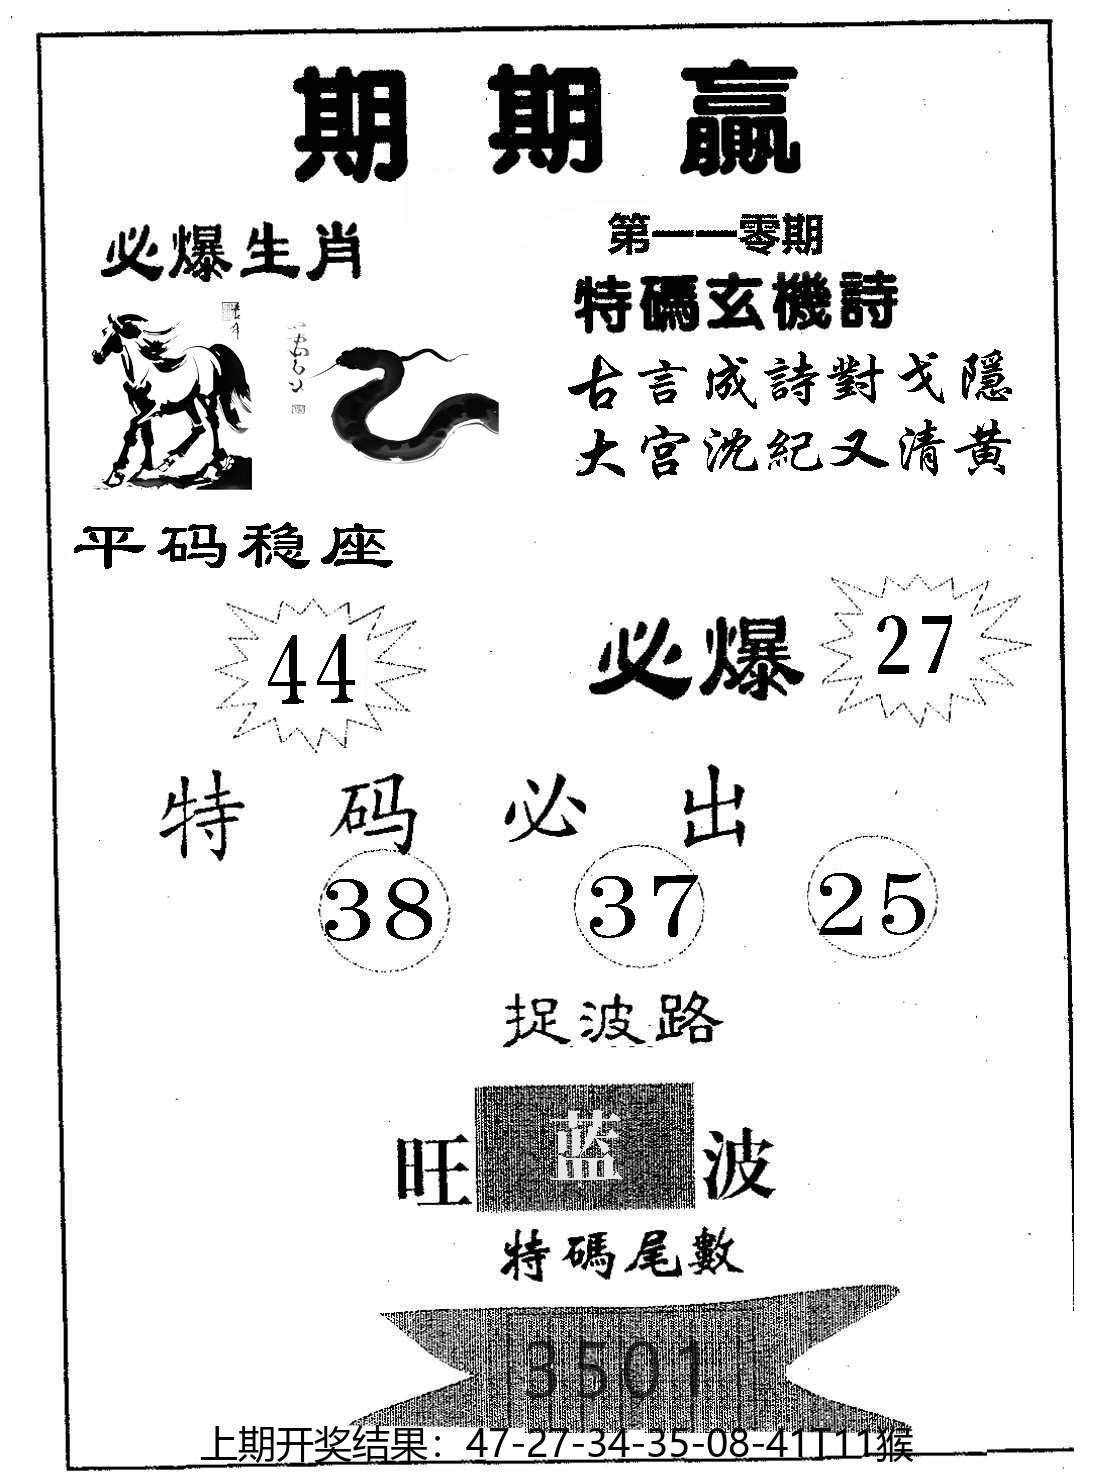 期期赢
必爆生肖
第一一零期
特碼玄機詩
古言成詩對戈隱
大宫沈紀又清黄
平码稳座
44
必爆 27
特码必出
38 37 25
捉波路
旺 蓝 波
特碼尾數
3501
上期开奖结果：47-27-34-35-08-41T11猴